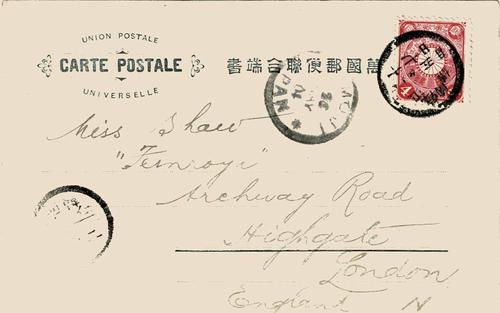 UNION POSTALE
CARTE POSTALE
UNIVERSELLE
書端合聯便郵國萬
JAPAN
4
Miss Shaw
"Fernroyd"
Archway Road
Highgate
London
England N